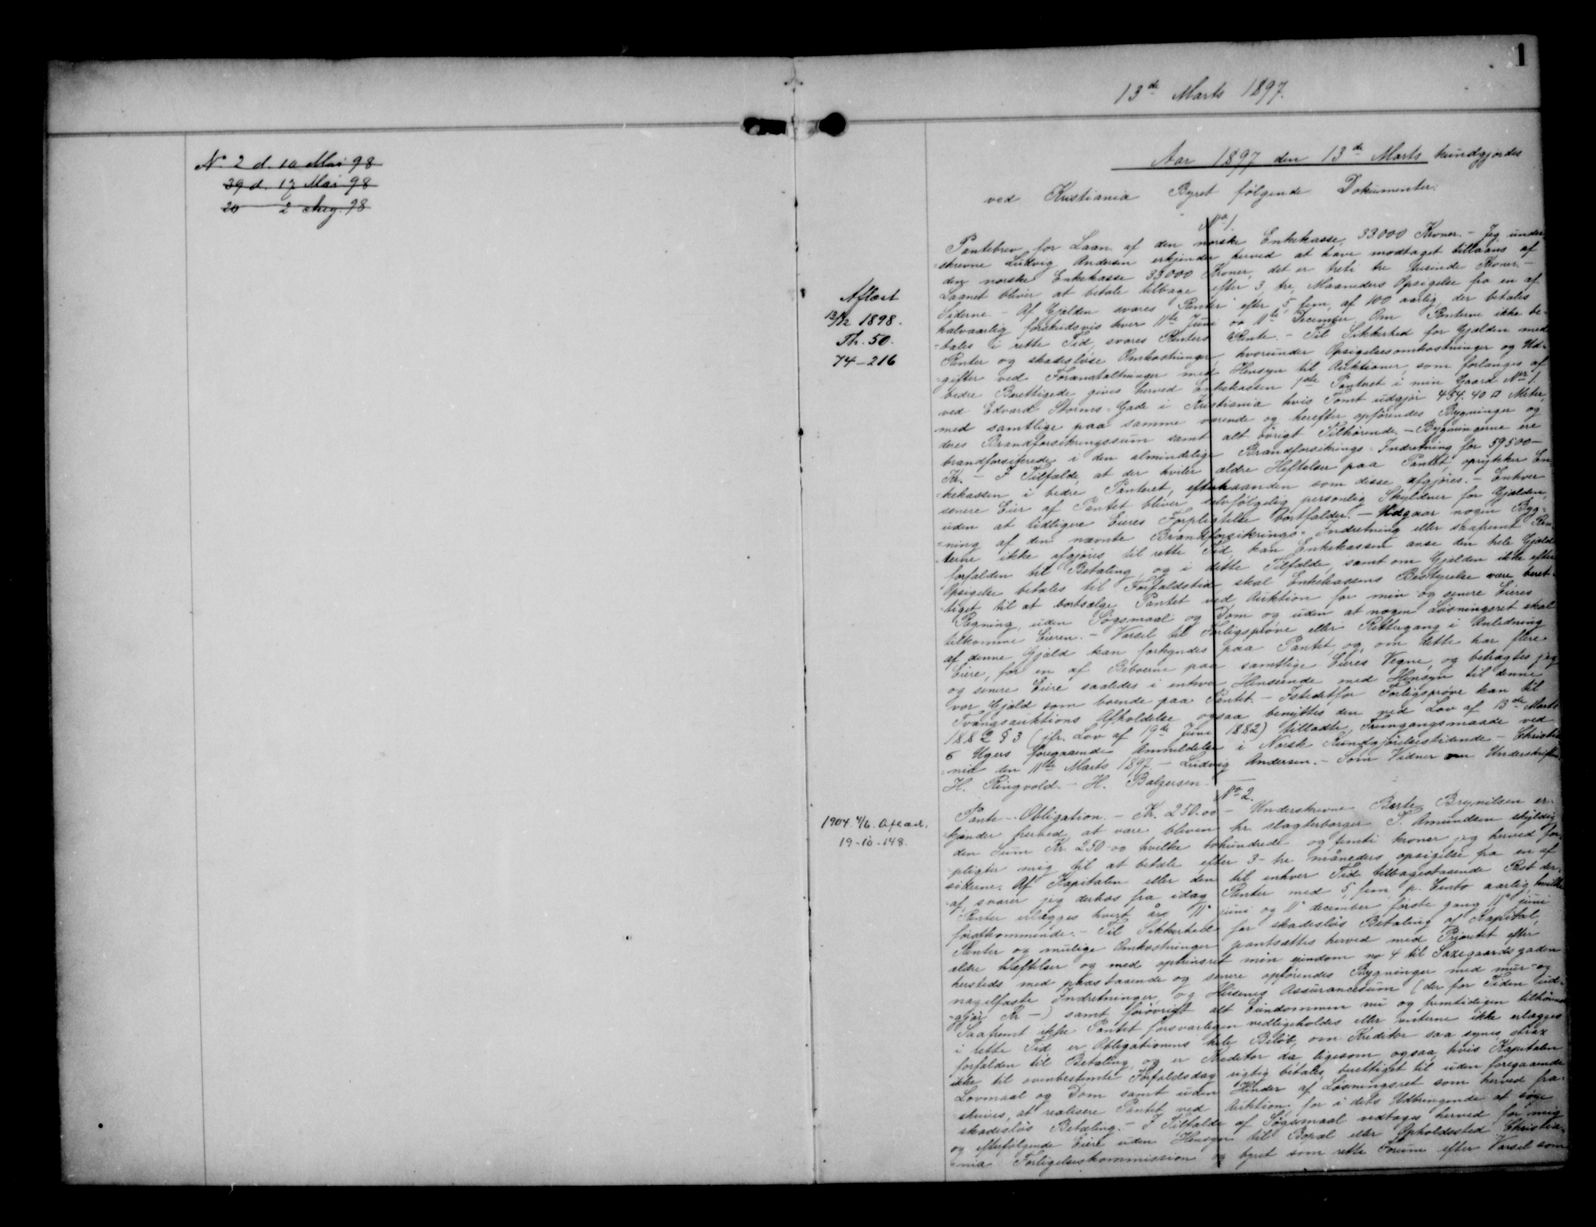 1
13de Marts 1897.
N. 2 d. 10 Mai 98
39 d. 17 Mai 98
20 2 Aug. 98
Aar 1897 den 13de Marts kundgjordes
ved Kristiania Byret følgende Dokumenter.
No 1.
Aflæst
13/12 1898.
Th. 50.
74-216
Pantebrev for Laan af den norske Enkekasse, 33000 Kroner. - Jeg under-
skrevne Ludvig Andersen erkjender herved at have modtaget tillaans af
den norske Enkekasse 33000 Kroner, det er treti tre tusinde Kroner. -
Laanet bliver at betale tilbage efter 3, tre, Maaneders Opsigelse fra en af
Siderne - Af Gjælden svares Renter efter 5, fem, af 100 aarlig, der betales
halvaarlig forskudsvis hver 11te Juni og 11te December. Om Renterne ikke be-
tales i rette Tid, svares Renters Rente. - Til Sikkerhed for Gjælden med
Renter og skadesløse Omkostninger, hvorunder Opsigelsesomkostninger og Ud-
gifter ved Foranstaltninger med Hensyn til Auktioner, som forlanges af
bedre Berettigede, gives herved Enkekassen 1ste Panteret i min Gaard No 1
ved Edvard Storms Gade i Kristiania hvis Tomt udgjør 454.40 □ Meter,
med samtlige paa samme værende og herefter opførendes Bygninger og
deres Brandforsikringssum samt alt øvrigt Tilhørende. - Bygningerne ere
brandforsikrede i den almindelige Brandforsikrings-Indretning for 59500-
Kr. - I Tilfælde, at der hviler ældre Heftelser paa Pantet, oprykker En-
kekassen i bedre Panteret, efterhaanden som disse afgjøres. - Enhver
senere Eier af Pantet bliver selvfølgelig personlig Skyldner for Gjælden,
uden at tidligere Eieres Forpligtelse bortfalder. - Udgaar nogen Byg-
ning af den nævnte Brandforsikrings-Indretning eller saafremt Ren-
terne ikke afgjøres til rette Tid, kan Enkekassen anse den hele Gjæld
forfalden til Betaling, og i dette Tilfælde, samt om Gjælden ikke efter
Opsigelse betales til Forfaldstid skal Enkekassens Bestyrelse være beret-
tiget til at bortsælge Pantet ved Auktion for min og senere Eieres
Regning, uden Søgsmaal og Dom og uden at nogen Løsningsret skal
tilkomme Eieren. - Varsel til Forligsprøve eller Rettergang i Anledning
af denne Gjæld kan forkyndes paa Pantet, og, om dette har flere
Eiere, for en af Beboerne paa samtlige Eieres Vegne, og betragtes jeg
og senere Eiere saaledes i enhver Henseende med Hensyn til denne
vor Gjæld som boende paa Pantet. - Istedetfor Forligsprøve kan til
Tvangsauktions Afholdelse ogsaa benyttes den ved Lov af 13de Marts
1882 § 3 (jfr. Lov af 19de Juni 1882) tilladte Fremgangsmaade ved
6 Ugers foregaaende Anmeldelse i Norsk Kundgjørelsestidende. - Christia-
nia den 11te Marts 1897 - Ludvig Andersen. - Som Vidner om Underskriften
H. Ringvold. - H. Balgersen
No 2.
1904 7/6. Aflæst.
19-10-148.
Pante-Obligation. - Kr. 250.00 - Underskrevne Berte Brynilsen er-
kjender herved at være bleven hr. slagterborger T. Amundsen skyldig
den Sum Kr. 250.00 hvilke tohundrede og femti kroner jeg herved for-
pligter mig til at betale efter 3- tre måneders opsigelse fra en af
siderne. Af Kapitalen eller den til enhver Tid tilbagestaaende Rest der-
af svarer jeg derhos fra idag Renter med 5, fem p. Cento aarlig, hvilke
Renter erlægges hvert års 11 juni og 11 december første gang 11 juni
førstkommende. - Til Sikkerhed for skadesløs Betaling af Kapital,
Renter og mulige Omkostninger pantsættes herved med Prioritet efter
ældre Heftelser og med optrinsret min eiendom no 4 til Saxegaardsgaden
hersteds med paastaaende og senere opførendes Bygninger med mur- og
nagelfaste Indretninger, og Husenes Assurancesum (der for Tiden ud-
gjør Kr -) samt forøvrigt alt Eiendommen nu og fremtidigen tilhørende
Saafremt ikke Pantet forsvarligen vedligeholdes eller renterne ikke erlægges
i rette Tid er Obligationens hele Beløb, om Kreditor saa synes strax
forfalden til Betaling og er Kreditor da, ligesom ogsaa hvis Kapitalen
ikke til ovenbestemte Forfaldsdag rigtig betales, berettiget til uden foregaaende
Lovmaal og Dom samt uden Hinder af Løsningsret som herved fra-
skrives, at realisere Pantet ved Auktion, for i dets Udbringende at søge
skadesløs Betaling. - I Tilfælde af Søgsmaal vedtages herved for mig
og efterfølgende Eiere uden Hensyn til Bopæl eller Opholdssted Christia-
nia Forligelseskommission og byret som rette Forum efter Varsel som